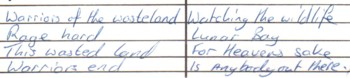 Warriors of the wasteland Watching the wildlife
Rage hard Lunar Bay
This wasted land For Heavens sake
Warriors end Is Anybody out there.